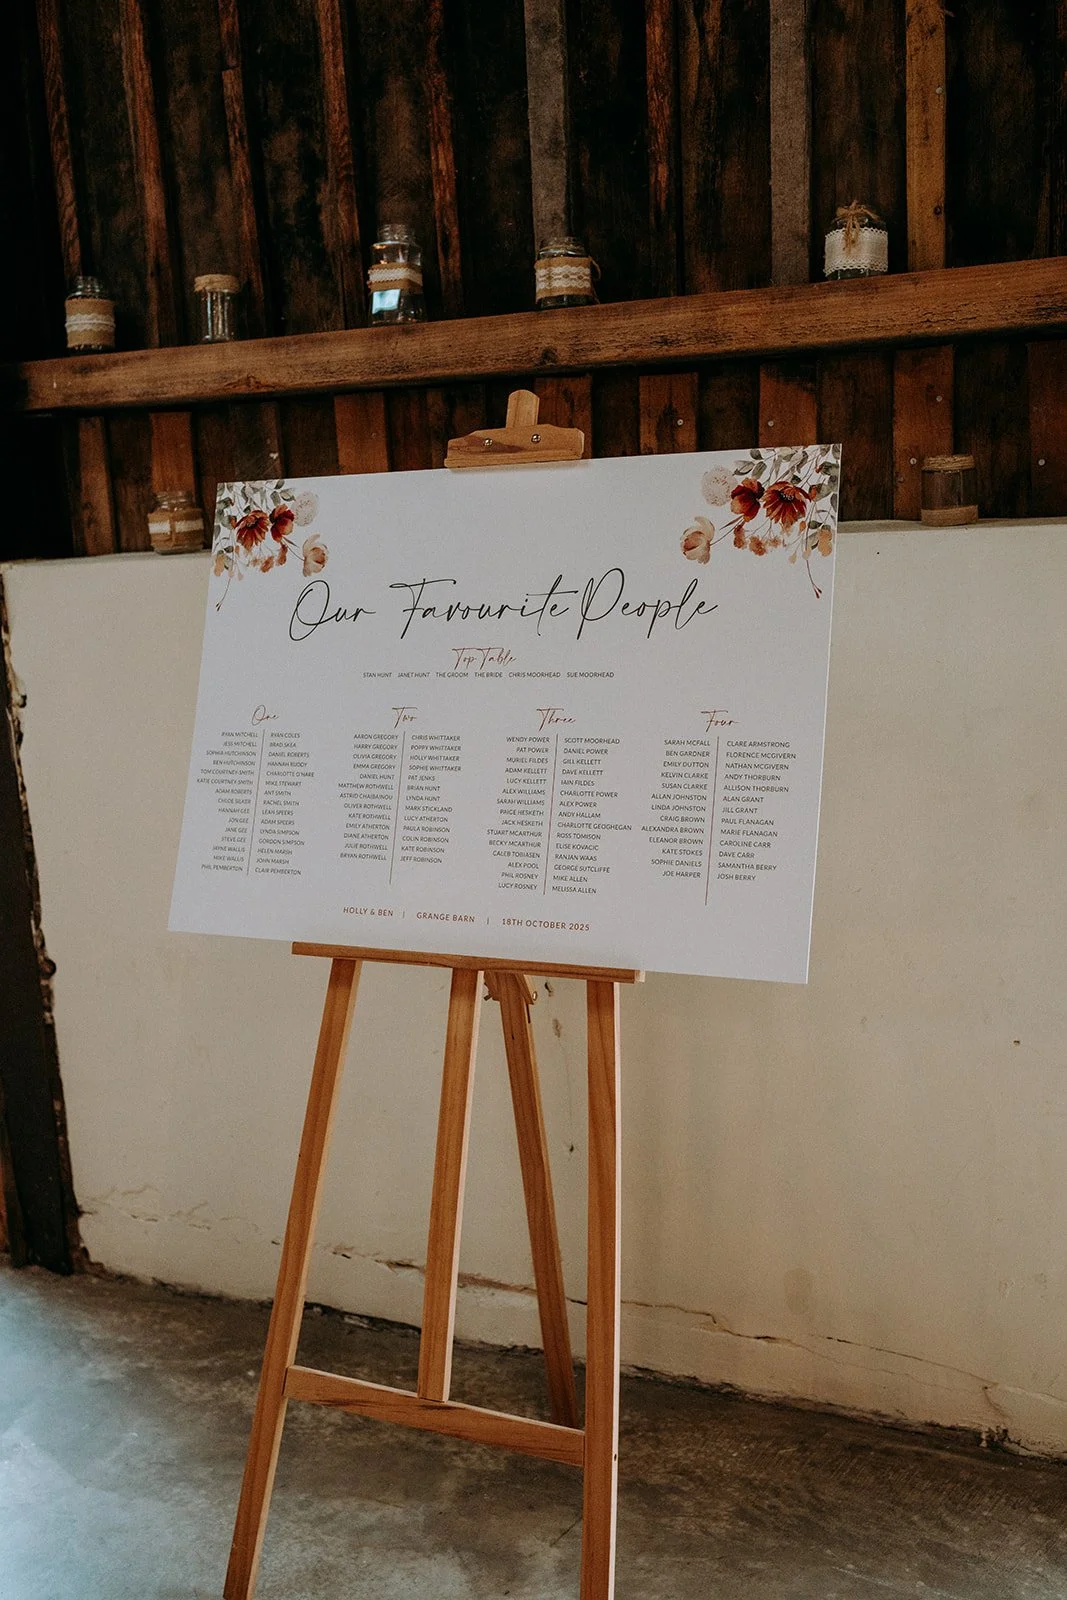 Our Favourite People
Top Table
STAN HUNT JANET HUNT THE GROOM THE BRIDE CHRIS MOORHEAD SUE MOORHEAD
One
RYAN MITCHELL
JESS MITCHELL
SOPHIA HUTCHINSON
BEN HUTCHINSON
TOM COURTNEY-SMITH
KATIE COURTNEY-SMITH
ADAM ROBERTS
CHLOE SILKER
HANNAH GEE
JON GEE
JANE GEE
STEVE GEE
JAYNE WALLIS
MIKE WALLIS
PHIL PEMBERTON
RYAN COLES
BRAD SKEA
DANIEL ROBERTS
HANNAH RUDDY
CHARLOTTE O'HARE
MIKE STEWART
ANT SMITH
RACHEL SMITH
LEAN SPEERS
ADAM SPEERS
LYNDA SIMPSON
GORDON SIMPSON
HELEN MARSH
JOHN MARSH
CLAIR PEMBERTON
Two
AARON GREGORY
HARRY GREGORY
OLIVIA GREGORY
EMMA GREGORY
DANIEL HUNT
MATTHEW ROTHWELL
ASTRID CHAIBAINOU
OLIVER ROTHWELL
KATE ROTHWELL
EMILY ATHERTON
DIANE ATHERTON
JULIE ROTHWELL
BRYAN ROTHWELL
CHRIS WHITTAKER
POPPY WHITTAKER
HOLLY WHITTAKER
SOPHIE WHITTAKER
PAT JENKS
BRIAN HUNT
LYNDA HUNT
MARK STICKLAND
LUCY ATHERTON
PAULA ROBINSON
COLIN ROBINSON
KATE ROBINSON
JEFF ROBINSON
Three
WENDY POWER
PAT POWER
MURIEL FILDES
ADAM KELLETT
LUCY KELLETT
ALEX WILLIAMS
SARAH WILLIAMS
PAIGE HESKETH
JACK HESKETH
STUART MCARTHUR
BECKY MCARTHUR
CALEB TOBIASEN
ALEX POOL
PHIL ROSNEY
LUCY ROSNEY
SCOTT MOORHEAD
DANIEL POWER
GILL KELLETT
DAVE KELLETT
IAIN FILDES
CHARLOTTE POWER
ALEX POWER
ANDY HALLAM
CHARLOTTE GEOGHEGAN
ROSS TOMISON
ELISE KOVACIC
RANJAN WAAS
GEORGE SUTCLIFFE
MIKE ALLEN
MELISSA ALLEN
Four
SARAH MCFALL
BEN GARDNER
EMILY DUTTON
KELVIN CLARKE
SUSAN CLARKE
ALLAN JOHNSTON
LINDA JOHNSTON
CRAIG BROWN
ALEXANDRA BROWN
ELEANOR BROWN
KATE STOKES
SOPHIE DANIELS
JOE HARPER
CLARE ARMSTRONG
FLORENCE MCGIVERN
NATHAN MCGIVERN
ANDY THORBURN
ALLISON THORBURN
ALAN GRANT
JILL GRANT
PAUL FLANAGAN
MARIE FLANAGAN
CAROLINE CARR
DAVE CARR
SAMANTHA BERRY
JOSH BERRY
HOLLY & BEN | GRANGE BARN | 18TH OCTOBER 2025